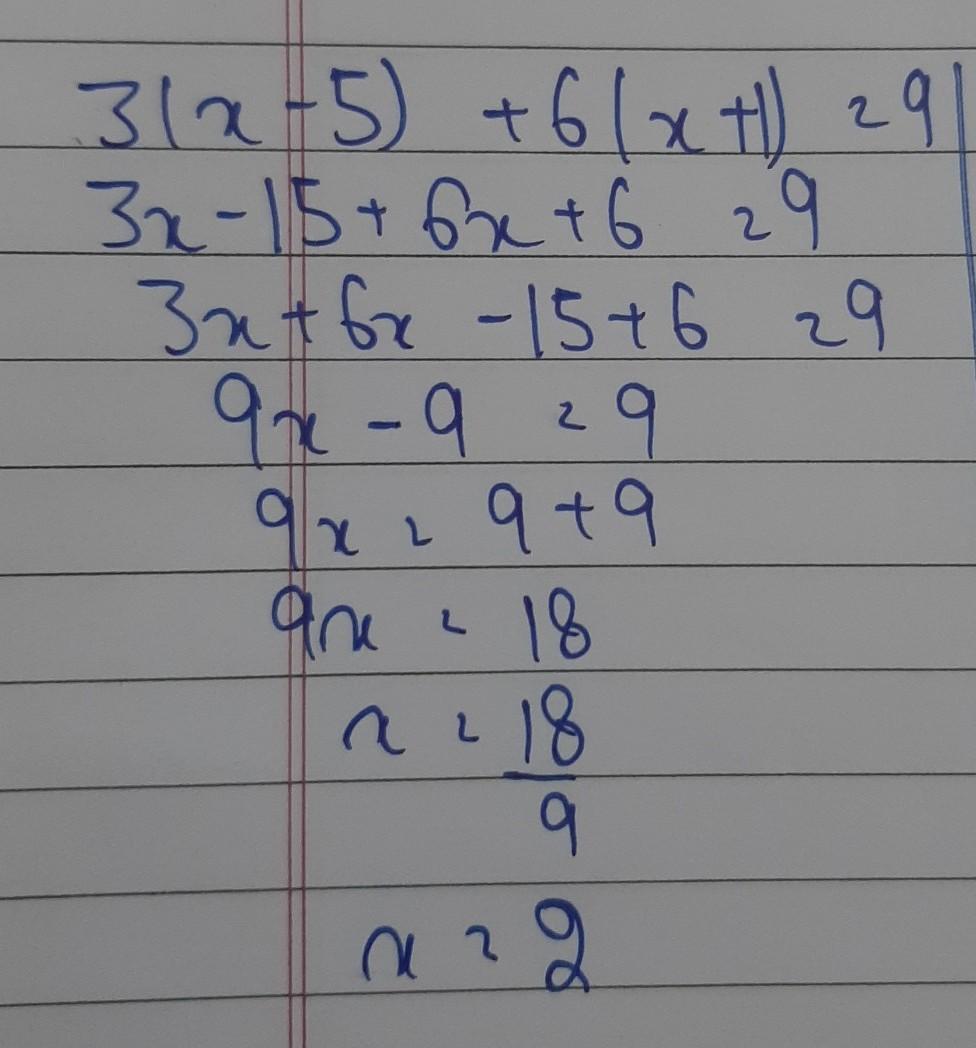 3(x-5) + 6(x+1) = 9
3x-15+ 6x+6 = 9
3x+6x -15+6 = 9
9x - 9 = 9
9x = 9+9
9x = 18
x = 18
9
x = 2